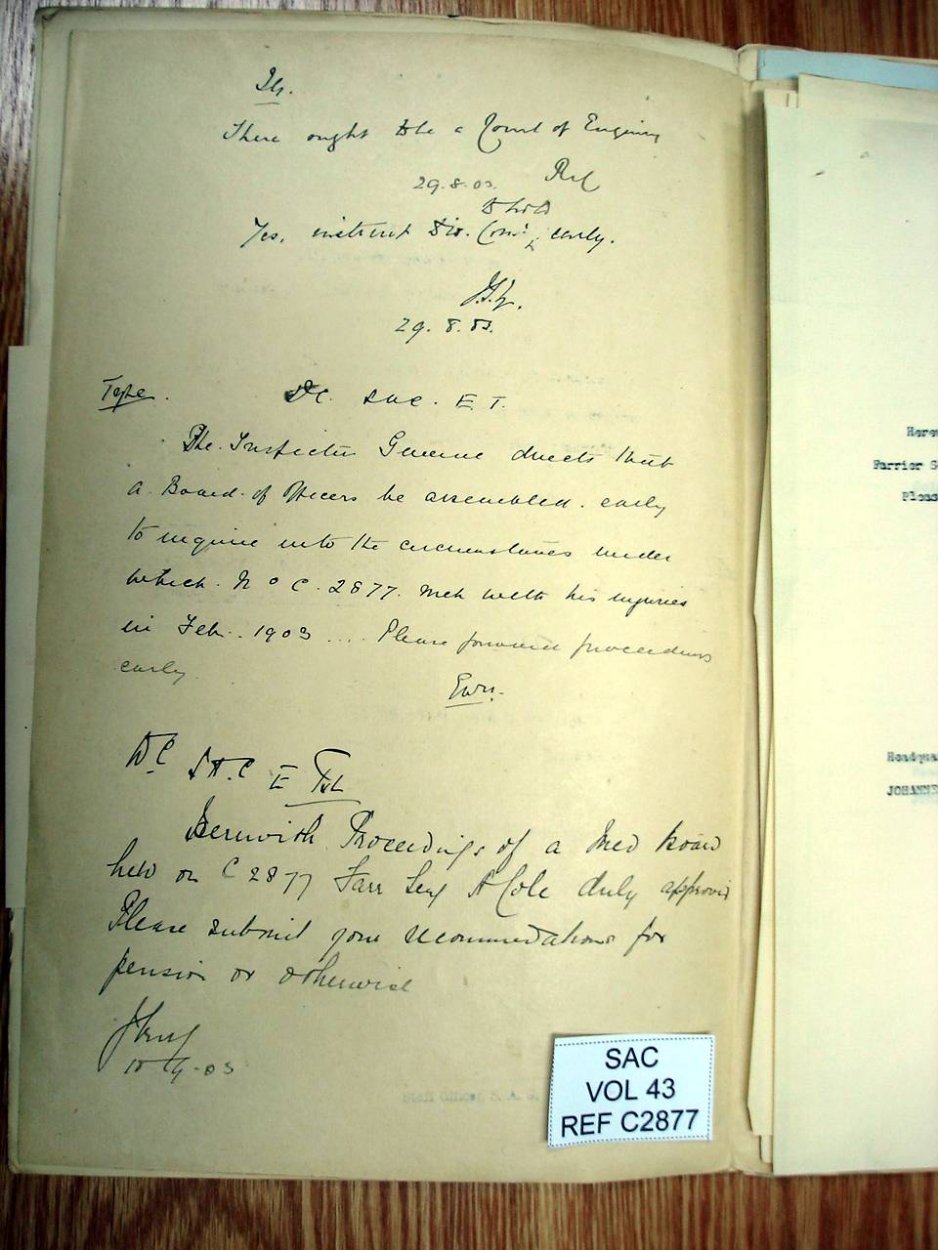 There ought to be a Court of Enquiry
29.8.03.
Yes. instruct Div. Comt early.
29.8.03.
Type. DC. SAC. E.T.
The Inspector General directs that
a Board of Officers be assembled early
to inquire into the circumstances under
which No C. 2877 met with his injuries
in Feb. 1903 .... Please forward proceedings
early
DC SAC E
Herewith Proceedings of a Med Board
held on C 2877 Farr Serg A Cole duly approved
Please submit your recommendations for
pension or otherwise
SAC
VOL 43
REF C2877
Farrier S
Headqua
JOHANNE